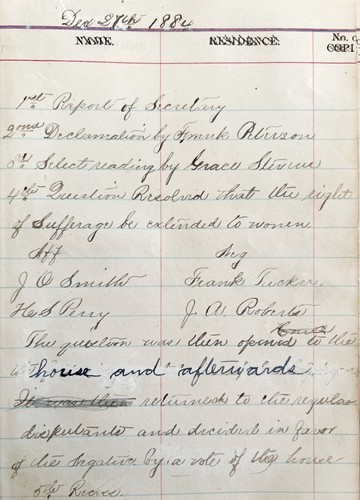 Dec 27th 1884
NAME. RESIDENCE. No. o
COPI
1st Report of Secretary
2ond Declamation by Frank Peterson
3rd Select reading by Grace Stevens
4th Question Resolved that the right
of Sufferage be extended to women
Aff Neg
J O Smith Frank Tucker
H S Perry J. A. Roberts
The question was then opened to the
house and afterwards
It was then returned to the regular
disputants and decided in favor
of the negative by a vote of the house
5th Recess